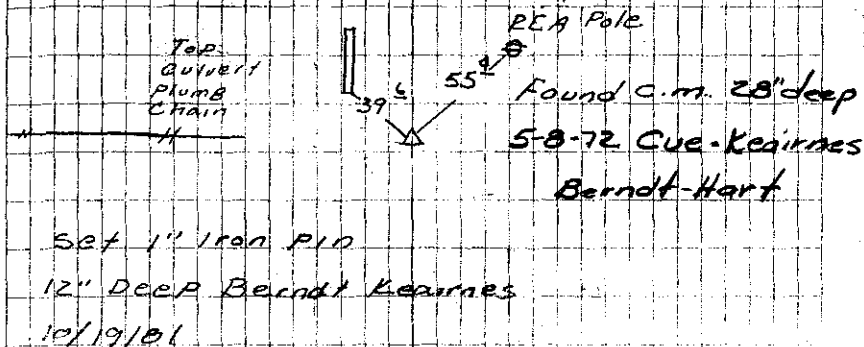 REA Pole
Top
Culvert
Plumb
Chain
39 6
55 4
Found c.m. 28" deep
5-8-72 Cue-Keairnes
Berndt-Hart
Set 1" Iron Pin
12" Deep Berndt Keairnes
10/19/81